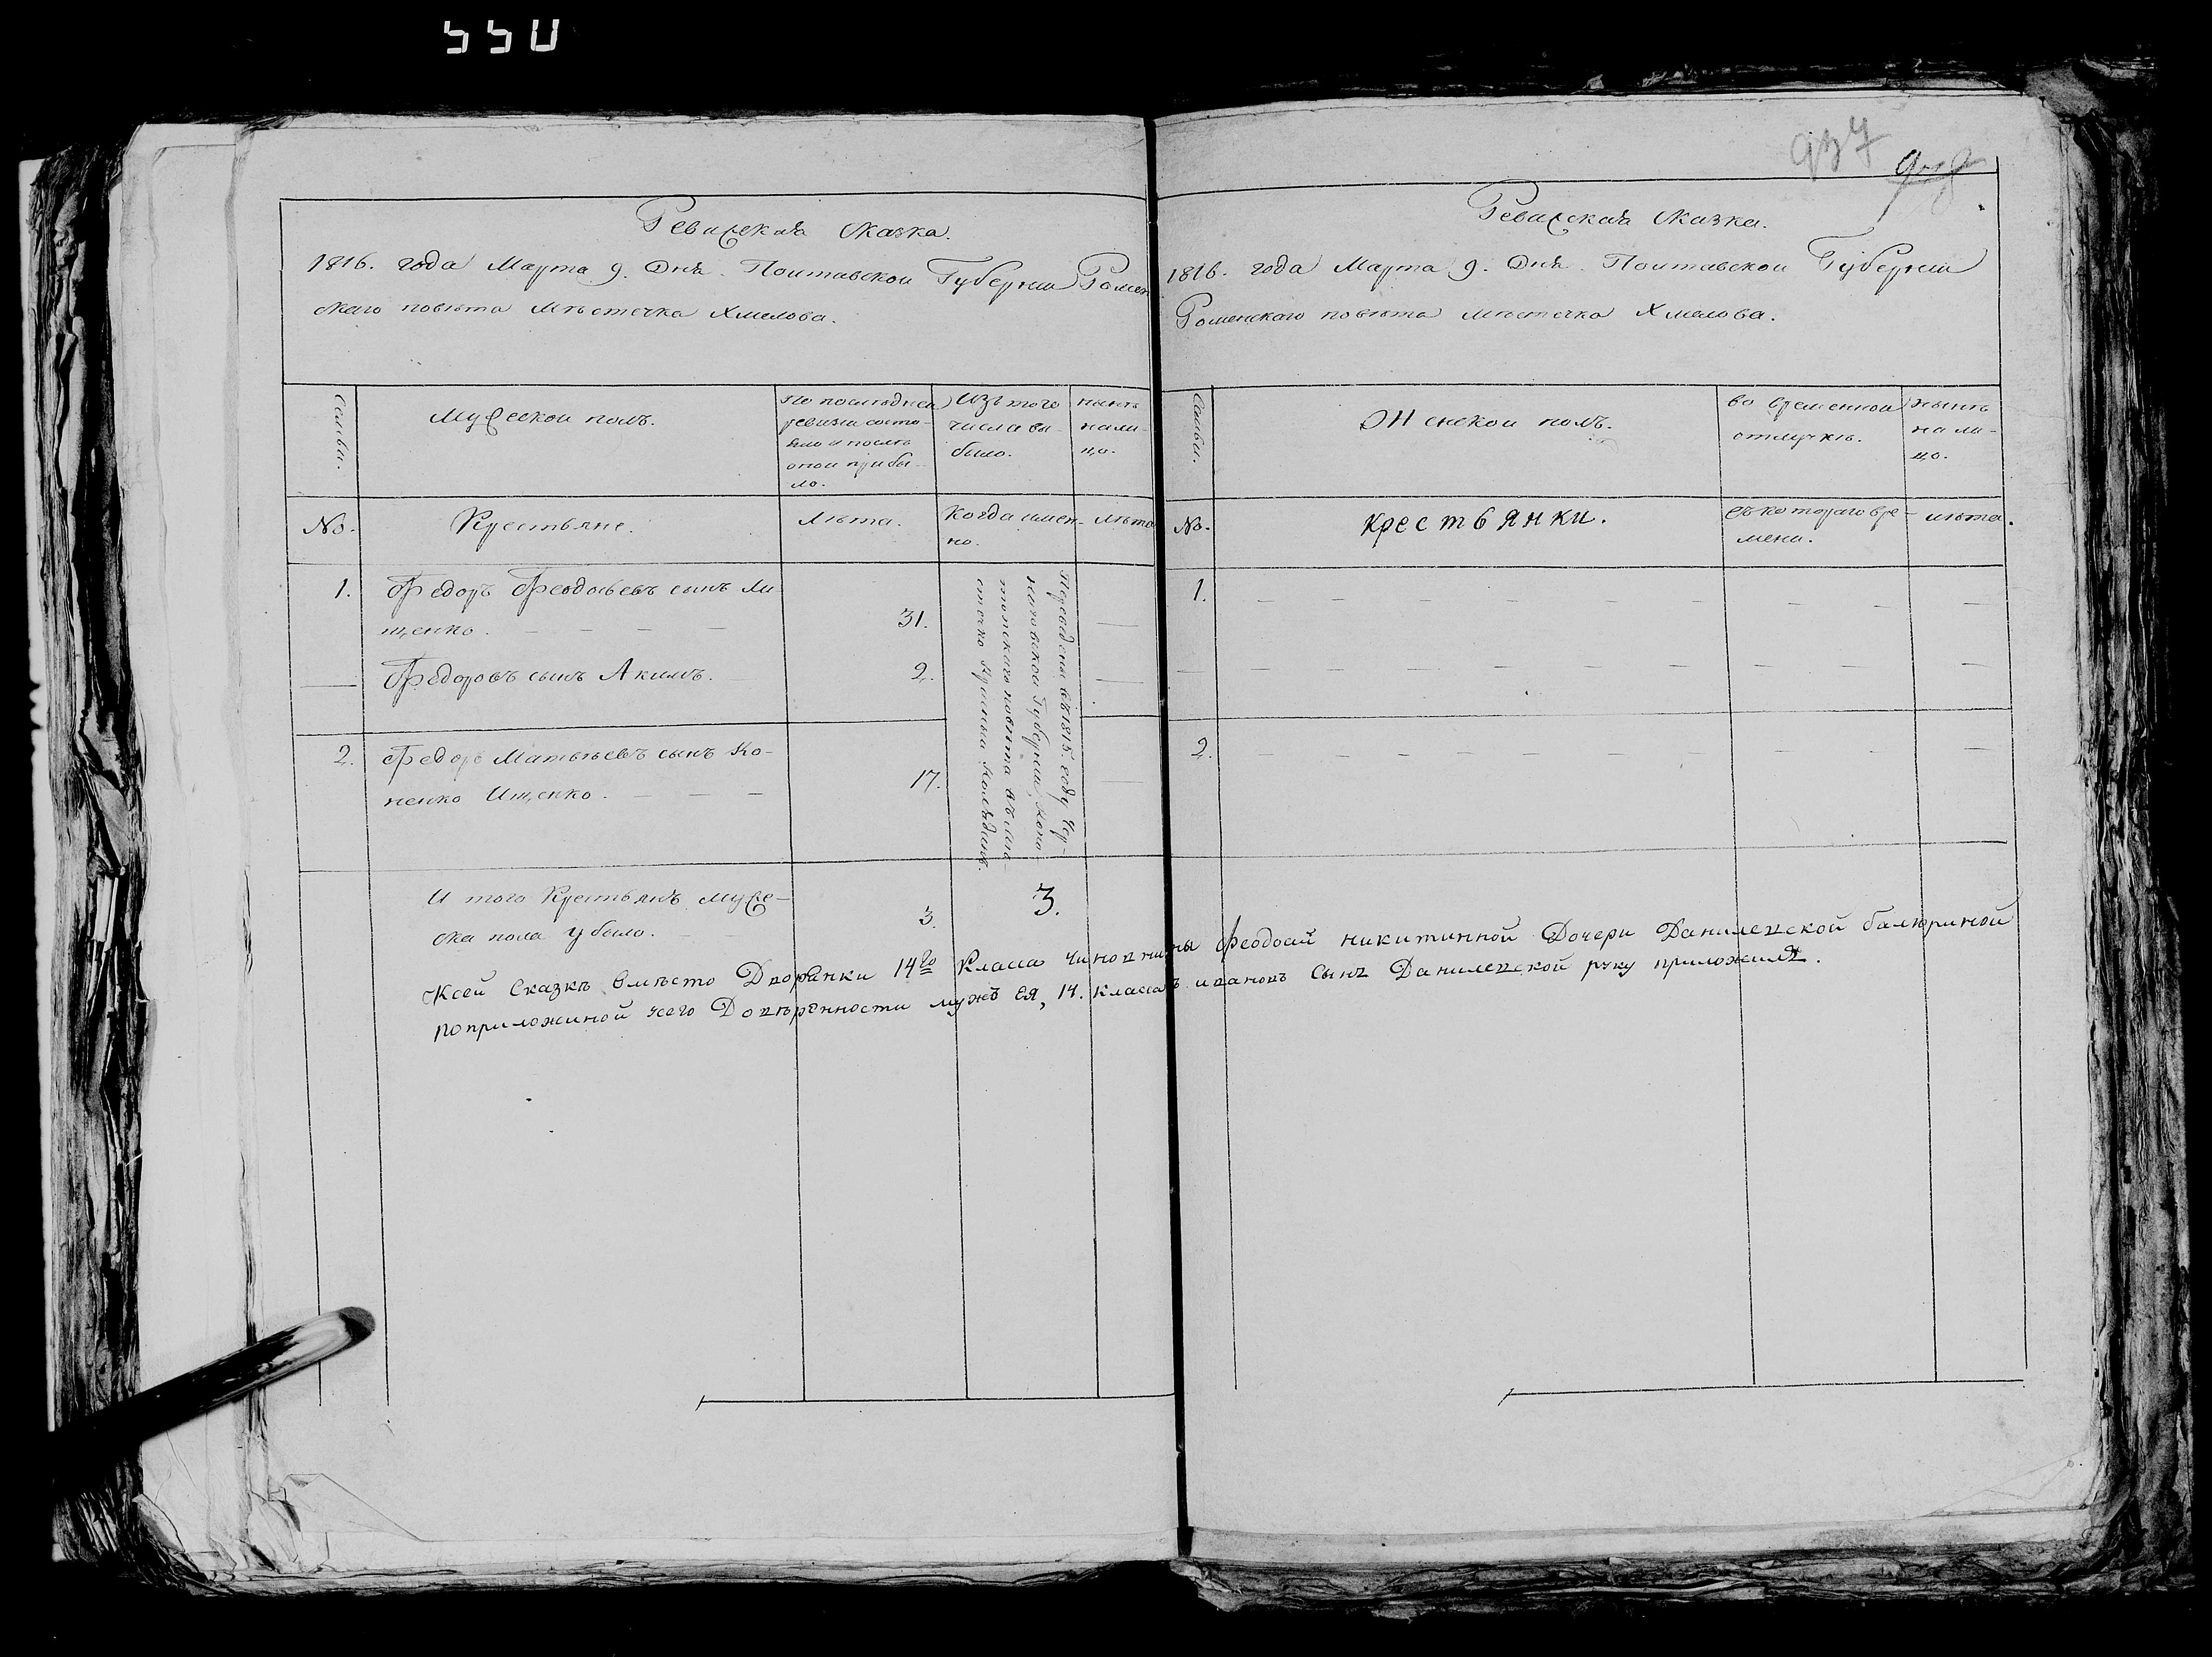 937
Ревискаѣ сказка.
1816. года Марта 9. дня. Полтавской Губернии Ромен
скаго повѣта мѣстечка Хмелова.
Семьи.
Мужескои полъ.
По последнеи
ревизии состо-
яло и послѣ
онои прибы-
ло.
Изъ того
числа вы-
было.
нынѣ
нали-
цо.
No.
Крестьяне.
Лѣта.
Когда имен-
но.
лѣта
1.
Федоръ Феодосьевъ сынъ
щенко.
31.
Федоровъ сынъ Акимъ.
2.
2.
Федоръ Матвѣевъ сынъ Ко-
ненко Ищенко.
17.
Переведены въ 1815. году Чер-
ниговской Губернии, Коно-
топскаго повѣта въ мѣ-
стечко Красный Колядинъ.
И того Крестьянъ муже-
ска пола убыло.
3.
3.
Ревискаѣ сказка.
1816. года Марта 9. дня. Полтавской Губернии
Роменскаго повѣта мѣстечка Хмелова.
Семьи.
Женскои полъ.
во временнои
отлучкѣ.
нынѣ
на ли-
цо.
No.
крестьянки.
съ котораго вре-
мени.
лѣта.
1.
2.
Ксей Сказкѣ вмѣсто Дворянки 14го Класса Чиновницы Феодосий никитинной Дочери Данилевской балюриной
поприложиной усего Довѣренности мужъ ея, 14. класса ивановъ Сынъ Данилевской руку приложилъ.